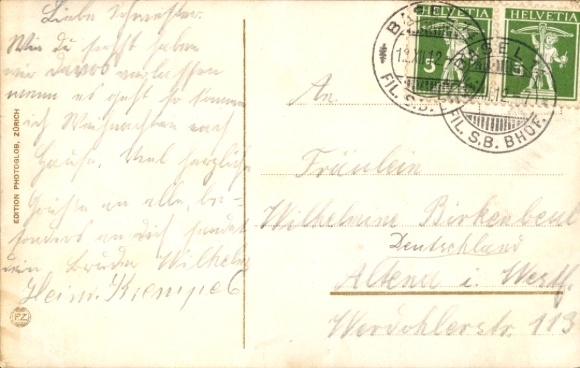 Liebe Schwester.
Wie du sehst haben
wir Davos verlassen
wenn es geht so komme
ich Weihnachten nach
Hause. Viel herzliche
Grüße an alle, be-
sonders an dich sendet
dein Bruder Wilhelm
Heinr.
EDITION PHOTOGLOB, ZÜRICH
PZ
HELVETIA
HELVETIA
5
5
BASEL
12.XII.12
FIL. S.B.
BASEL
XII.12
FIL. S.B. BHOF.
An.
Fräulein
Wilhelmine Birkenbeul
Deutschland
Altena i. Westf.
Werdohlerstr. 113